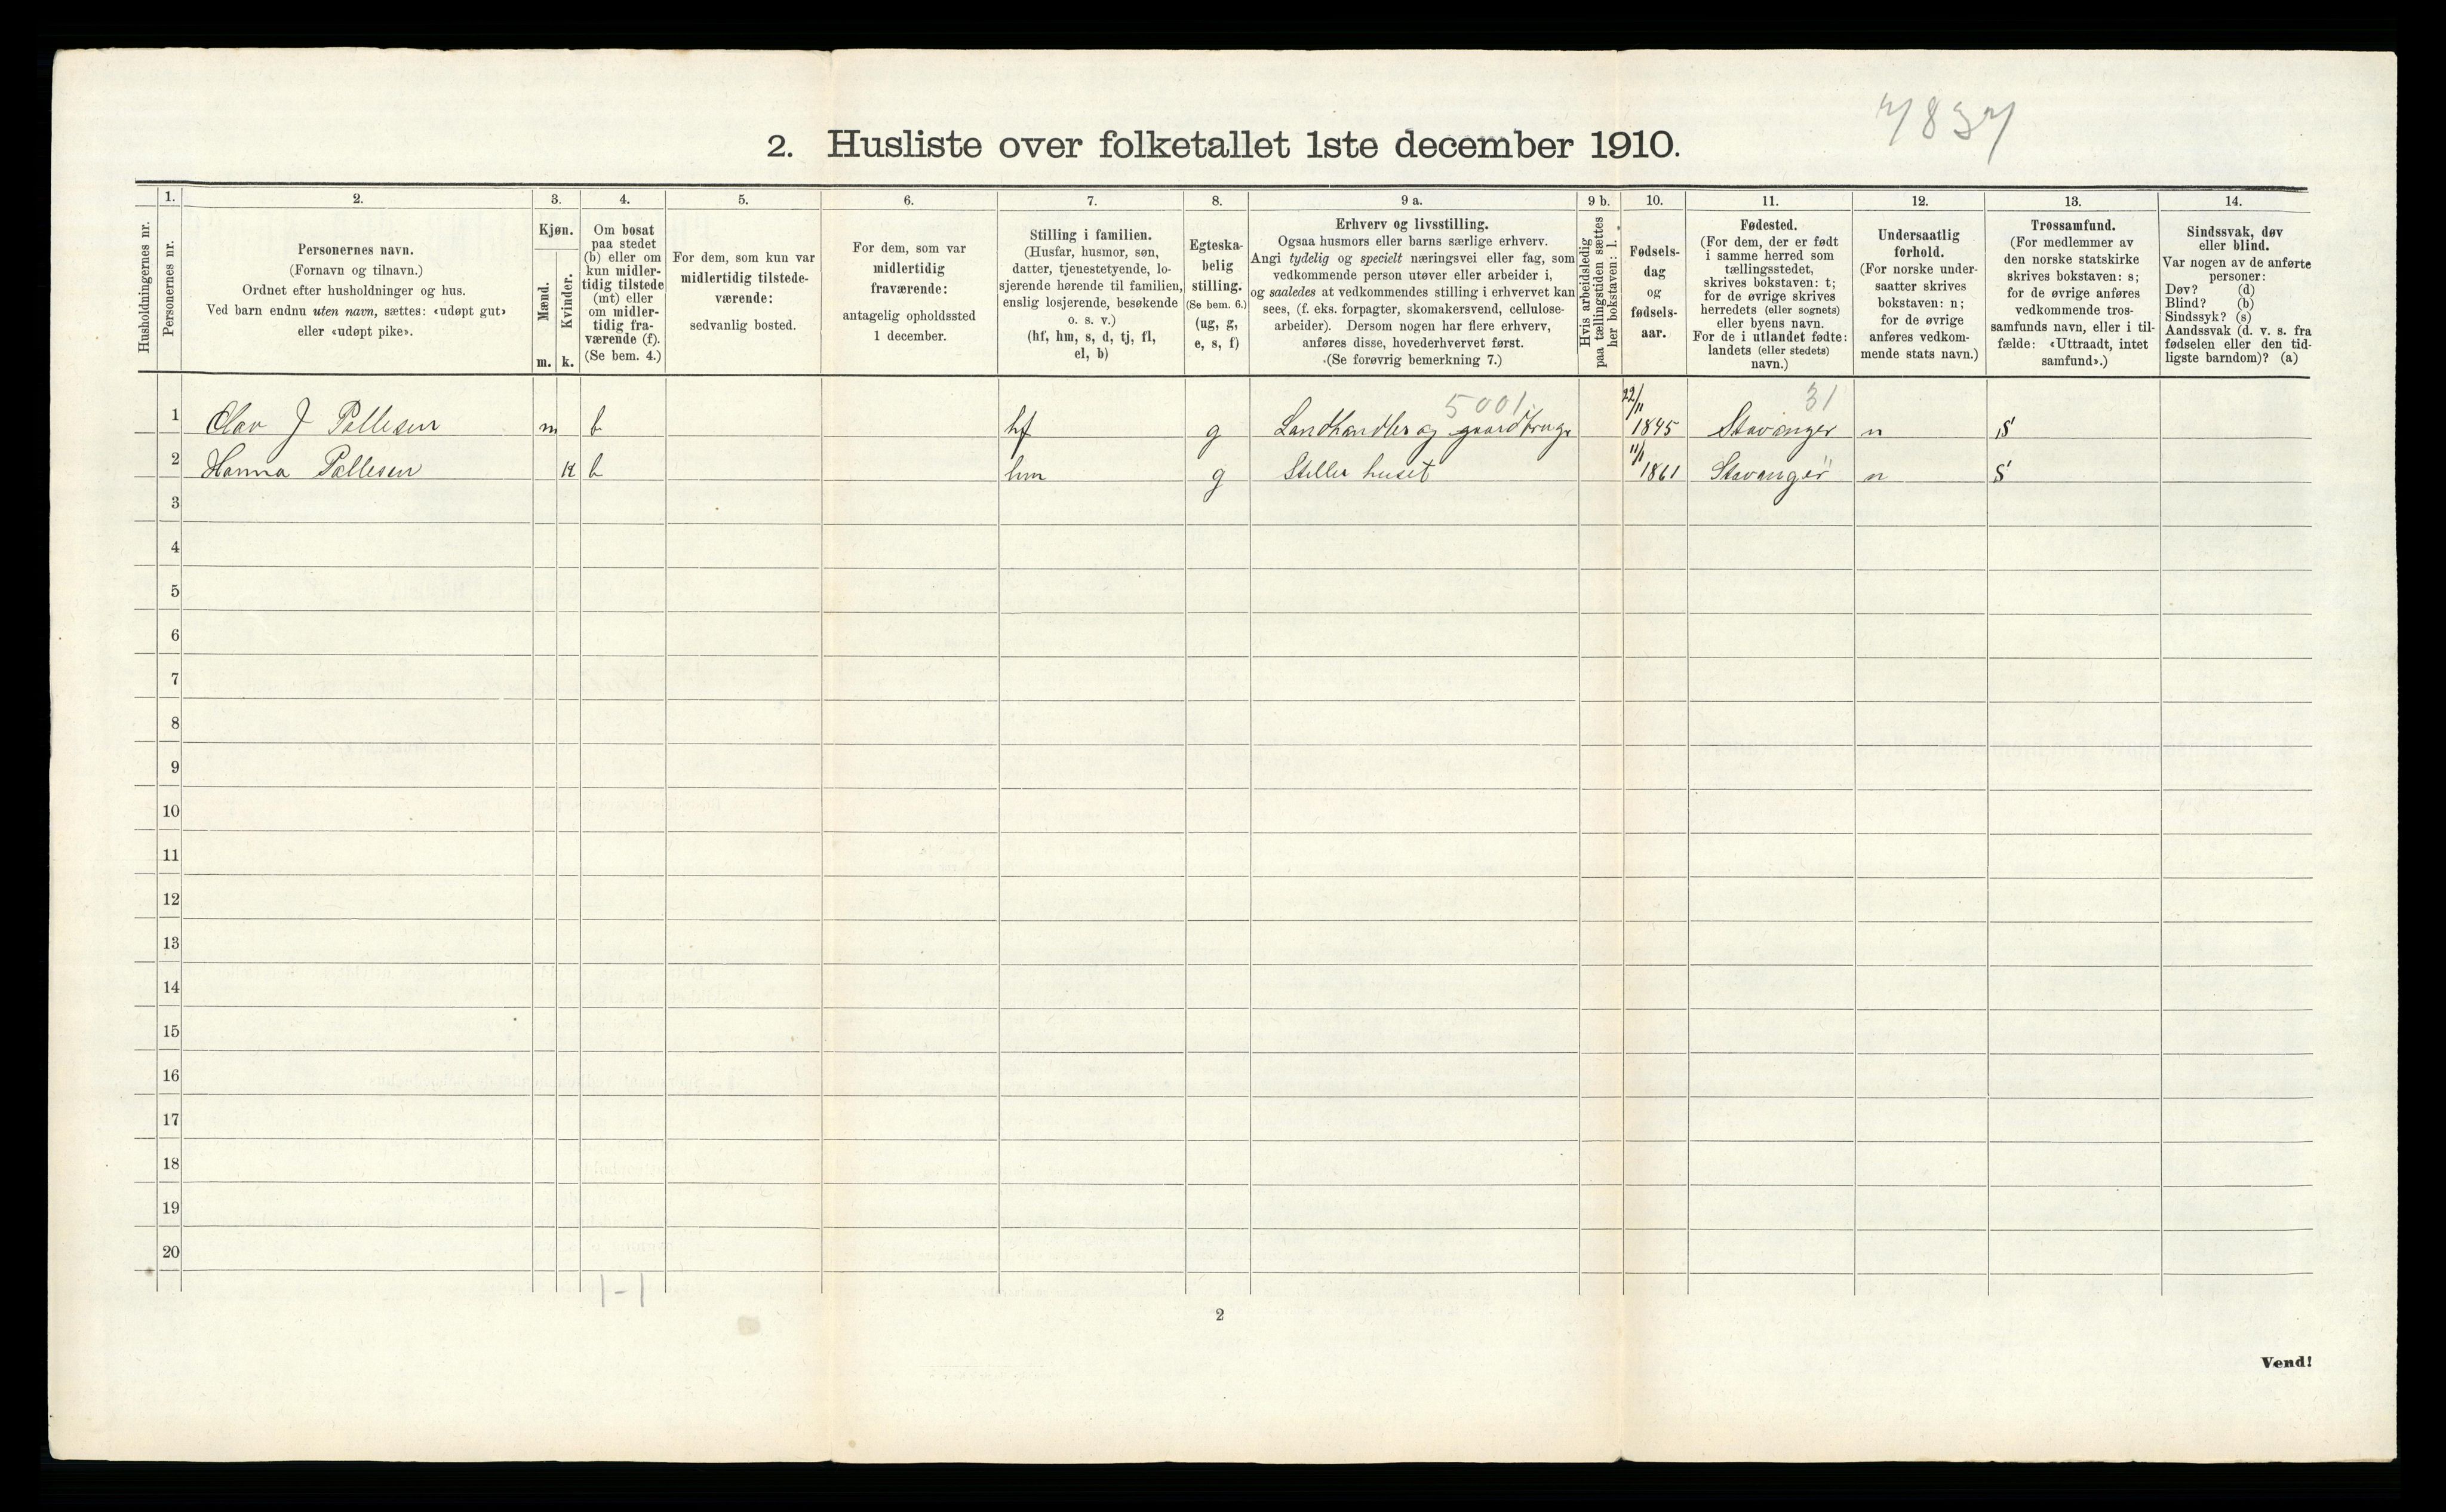 7837
2. Husliste over folketallet 1ste december 1910.
Husholdningernes nr.
1.
Personernes nr.
2.
Personernes navn.
(Fornavn og tilnavn.)
Ordnet efter husholdninger og hus.
Ved barn endnu uten navn, sættes: «udøpt gut»
eller «udøpt pike».
3.
Kjøn.
Mænd.
m.
Kvinder.
k.
4.
Om bosat
paa stedet
(b) eller om
kun midler-
tidig tilstede
(mt) eller
om midler-
tidig fra-
værende (f).
(Se bem. 4.)
5.
For dem, som kun var
midlertidig tilstede-
værende:
sedvanlig bosted.
6.
For dem, som var
midlertidig
fraværende:
antagelig opholdssted
1 december.
7.
Stilling i familien.
(Husfar, husmor, søn,
datter, tjenestetyende, lo-
sjerende hørende til familien,
enslig losjerende, besøkende
o. s. v.)
(hf, hm, s, d, tj, fl,
el, b)
8.
Egteska-
belig
stilling.
(Se bem. 6.)
(ug, g,
e, s, f)
9 a.
Erhverv og livsstilling.
Ogsaa husmors eller barns særlige erhverv.
Angi tydelig og specielt næringsvei eller fag, som
vedkommende person utøver eller arbeider i,
og saaledes at vedkommendes stilling i erhvervet kan
sees, (f. eks. forpagter, skomakersvend, cellulose-
arbeider). Dersom nogen har flere erhverv,
anføres disse, hovederhvervet først.
(Se forøvrig bemerkning 7.)
9 b.
Hvis arbeidsledig
paa tællingstiden sættes
her bokstaven: l.
10.
Fødsels-
dag
og
fødsels-
aar.
11.
Fødested.
(For dem, der er født
i samme herred som
tællingsstedet,
skrives bokstaven: t;
for de øvrige skrives
herredets (eller sognets)
eller byens navn.
For de i utlandet fødte:
landets (eller stedets)
navn.)
12.
Undersaatlig
forhold.
(For norske under-
saatter skrives
bokstaven: n;
for de øvrige
anføres vedkom-
mende stats navn.)
13.
Trossamfund.
(For medlemmer av
den norske statskirke
skrives bokstaven: s;
for de øvrige anføres
vedkommende tros-
samfunds navn, eller i til-
fælde: «Uttraadt, intet
samfund».)
14.
Sindssvak, døv
eller blind.
Var nogen av de anførte
personer:
Døv? (d)
Blind? (b)
Sindssyk? (s)
Aandssvak (d. v. s. fra
fødselen eller den tid-
ligste barndom)? (a)
5001. 31
1 Olav J Pallesen m b hf g Landhandler og gaardbruge 22/11 1845 Stavanger n s
2 Hanna Pallesen k b hm g Steller huset 11/1 1861 Stavanger n s
3
4
5
6
7
8
9
10
11
12
13
14
15
16
17
18
19
20
1-1
2
Vend!